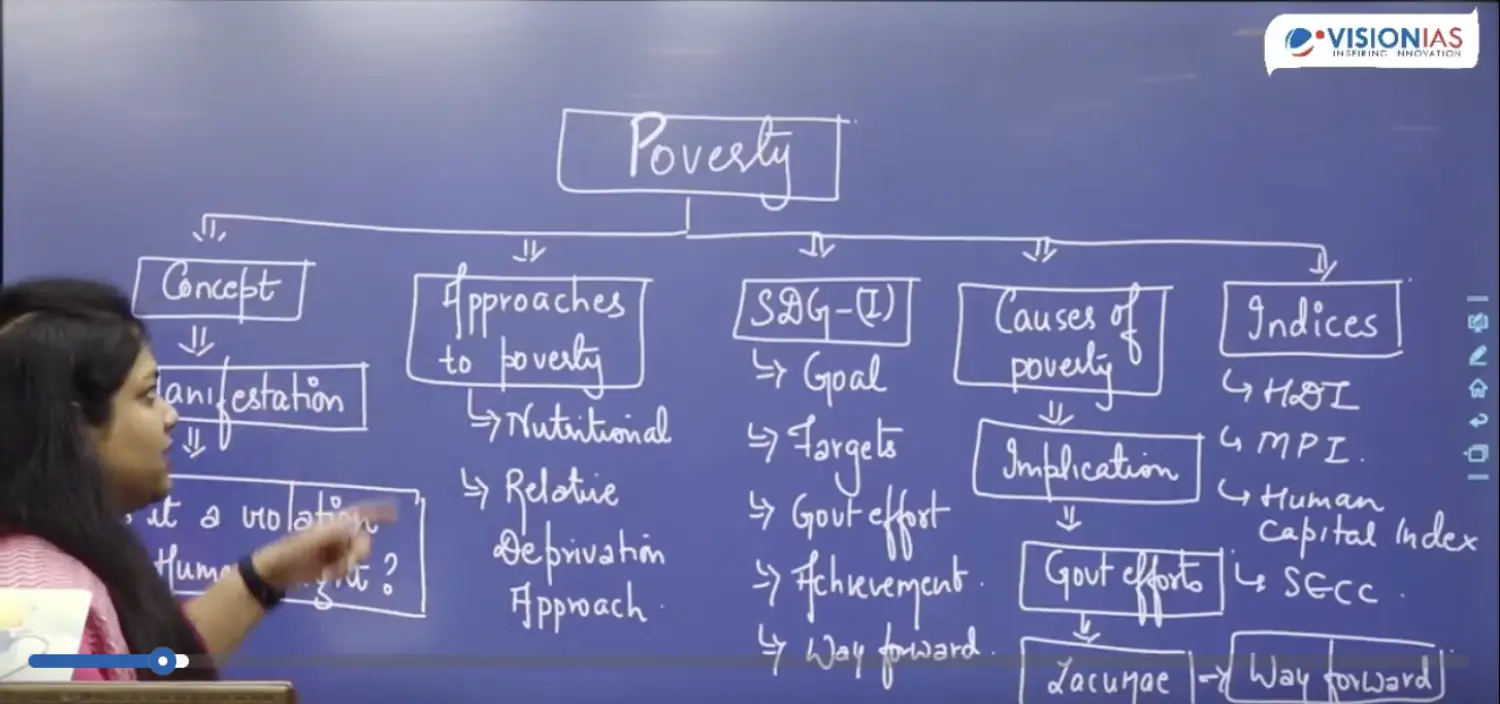 VISIONIAS
INSPIRING INNOVATION
Poverty
Concept
Manifestation
it a violation
Human ?
Approaches
to poverty
Nutritional
Relative
Deprivation
Approach.
SDG-(I)
Goal
Targets
Govt effort
Achievement.
Way forward.
Causes of
poverty
Implication
Govt efforts
Lacunae
Way forward
Indices
HDI
MPI.
Human
Capital Index
SECC.